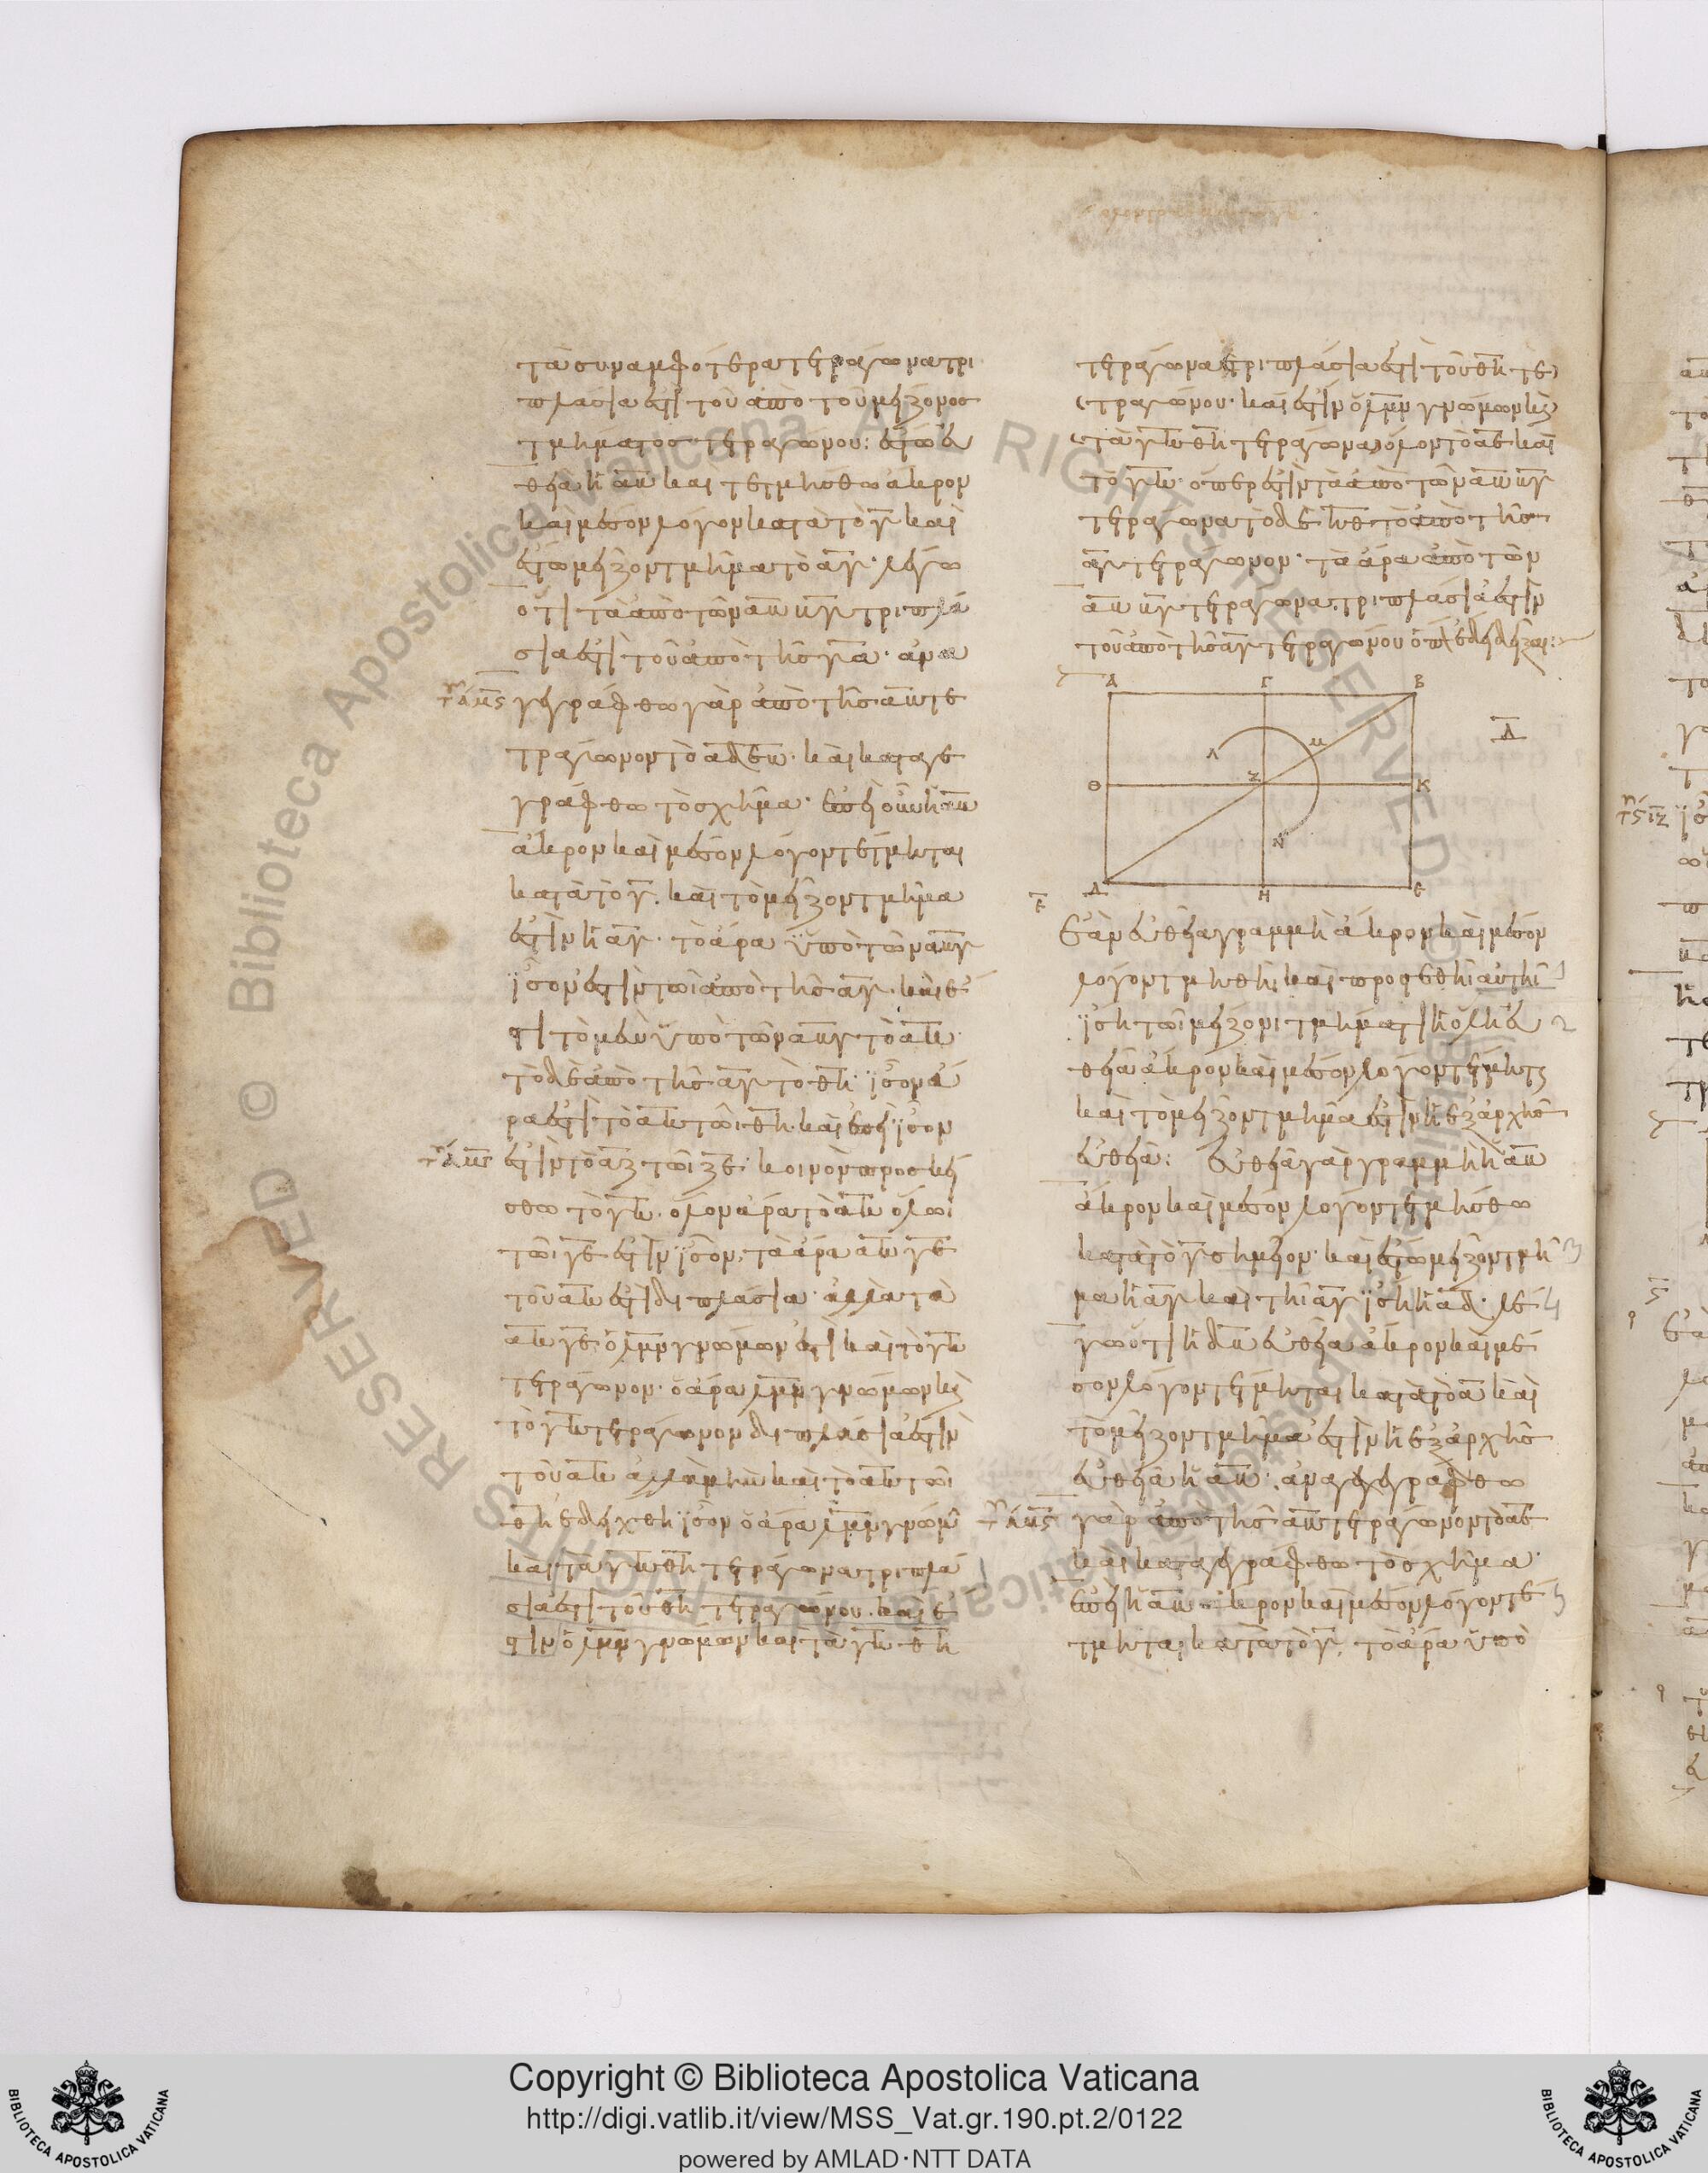 τὰ συναμφότερα τετράγωνα τρι
πλάσιά ἐστι τοῦ ἀπὸ τοῦ μείζονος
τμήματος τετραγώνου: ἔστω εὐ
θεῖα ἡ αβ καὶ τετμήσθω ἄκρον
καὶ μέσον λόγον κατὰ τὸ γ καὶ
ἔστω μεῖζον τμῆμα τὸ αγ· λέγω
ὅτι τὰ ἀπὸ τῶν αβ βγ τριπλά
σιά ἐστι τοῦ ἀπὸ τῆς γα· ἀνα
γεγράφθω γὰρ ἀπὸ τῆς αβ τε
τράγωνον τὸ αδεβ· καὶ καταγε
γράφθω τὸ σχῆμα· ἐπεὶ οὖν ἡ αβ
ἄκρον καὶ μέσον λόγον τέτμηται
κατὰ τὸ γ, καὶ τὸ μεῖζον τμῆμα
ἐστὶν ἡ αγ· τὸ ἄρα ὑπὸ τῶν αβγ
ἴσον ἐστὶν τῶι ἀπὸ τῆς αγ. καὶ ἔ
στι τὸ μὲν ὑπὸ τῶν αβγ τὸ ακ
τὸ δὲ ἀπὸ τῆς αγ τὸ θη· ἴσον ἄ
ρα ἐστὶ τὸ ακ τῶι θη. καὶ ἐπεὶ ἴσον
ἐστὶν τὸ αζ τῶι ζε· κοινὸν προσκεί
σθω τὸ γκ. ὅλον ἄρα τὸ ακ ὅλωι
τῶι γε ἐστὶν ἴσον· τὰ ἄρα ακ γε
τοῦ ακ ἐστὶ διπλάσια· ἀλλὰ τὰ
ακ γε ὁ λμν γνώμων ἐστὶ καὶ τὸ γκ
τετράγωνον· ὁ ἄρα λμν γνώμων καὶ
τὸ γκ τετράγωνον διπλάσιά ἐστιν
τοῦ ακ ἀλλὰ μὴν καὶ τὸ ακ τῶι
θη ἐδείχθη ἴσον ὁ ἄρα λμν γνώμ
καὶ τὰ γκ θη τετράγωνα τριπλά
σιά ἐστι τοῦ θη τετραγώνου. καὶ ἔ
στιν ὁ λμν γνώμων καὶ τὰ γκ θη
τετράγωνα τριπλάσιά ἐστι τοῦ θη τε
τραγώνου· καί ἐστιν ὁ λμν γνώμων καὶ
τὰ γκ θη τετράγωνα ὅλον τὸ αε καὶ
τὸ γκ· ὅπερ ἐστὶν τὰ ἀπὸ τῶν αβ βγ
τετράγωνα τὸ δὲ ηθ τὸ ἀπὸ τῆς
αγ τετράγωνον· τὰ ἄρα ἀπὸ τῶν
αβ βγ τετράγωνα τριπλάσιά ἐστιν
τοῦ ἀπὸ τῆς αγ τετραγώνου ὅπερ ἔδει δεῖξαι:
Α Γ Β
Δ
Λ Μ
Θ Ζ Κ
Ν
Δ Η Ε
ε
ἐὰν εὐθεῖα γραμμὴ ἄκρον καὶ μέσον
λόγον τμηθῆι καὶ προστεθῆι αὐτῆι
ἴση τῶι μείζονι τμήματι ἡ ὅλη εὐ
θεῖα ἄκρον καὶ μέσον λόγον τέτμητ
καὶ τὸ μεῖζον τμῆμα ἐστὶν ἡ ἐξ ἀρχῆς
εὐθεῖα: εὐθεῖα γὰρ γραμμὴ ἡ αβ
ἄκρον καὶ μέσον λόγον τετμήσθω
κατὰ τὸ γ σημεῖον· καὶ ἔστω μεῖζον τμῆ
μα ἡ αγ καὶ τῆι αγ ἴση ἡ αδ. λέ
γω ὅτι ἡ δβ εὐθεῖα ἄκρον καὶ μέ
σον λόγον τέτμηται κατὰ τὸ α καὶ
τὸ μεῖζον τμῆμα ἐστὶν ἡ ἐξ ἀρχῆς
εὐθεῖα ἡ αβ· ἀναγεγράφθω
γὰρ ἀπὸ τῆς αβ τετράγωνον τὸ αε
καὶ καταγεγράφθω τὸ σχῆμα·
ἐπεὶ ἡ αβ ἄκρον καὶ μέσον λόγον τέ
τμηται κατὰ τὸ γ, τὸ ἄρα ὑπὸ
Copyright © Biblioteca Apostolica Vaticana
http://digi.vatlib.it/view/MSS_Vat.gr.190.pt.2/0122
powered by AMLAD·NTT DATA